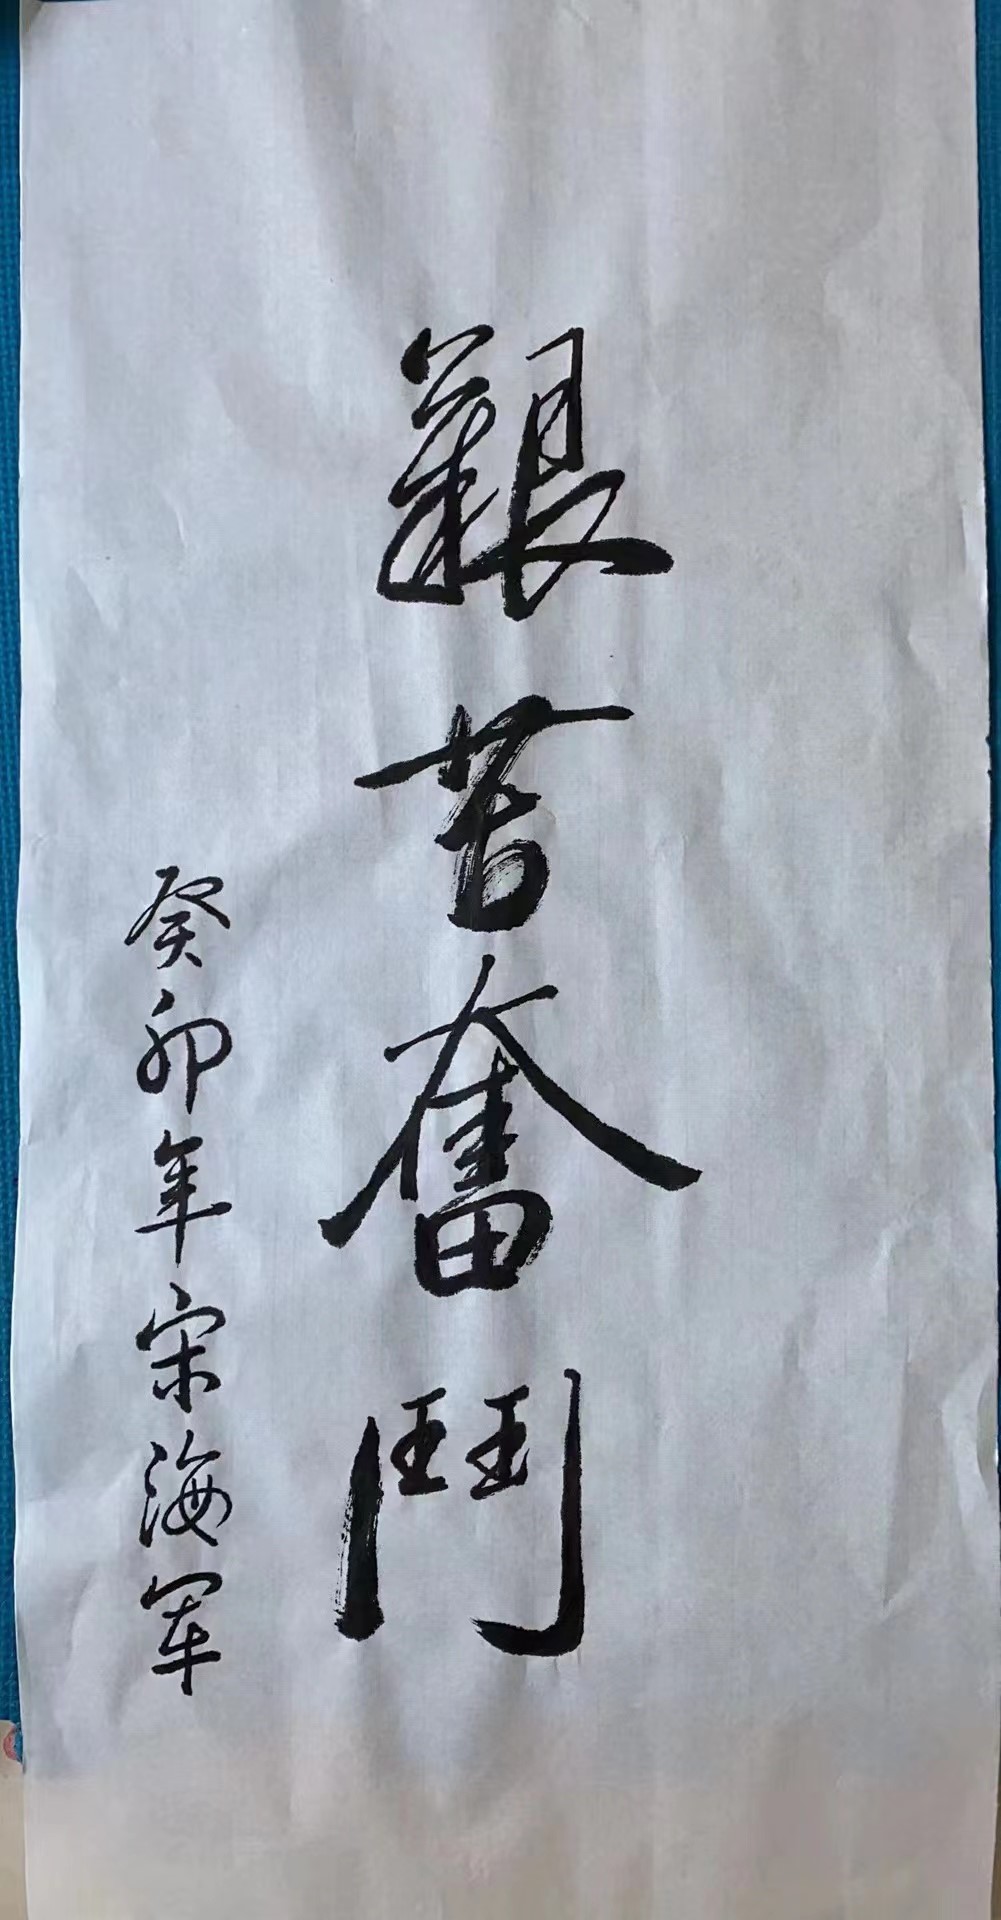 艱苦奮鬥
癸卯年宋海军